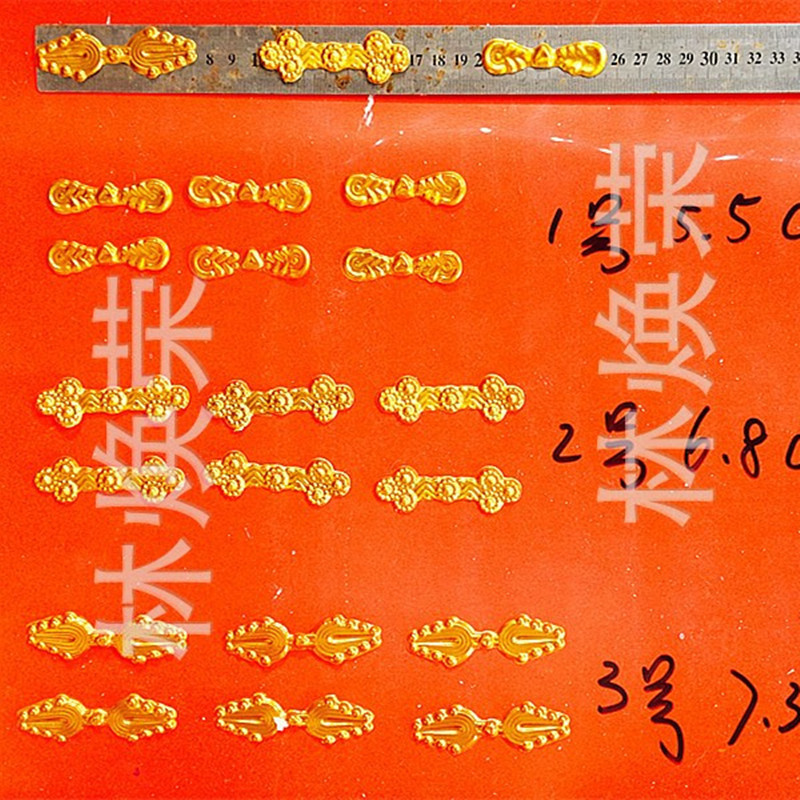 8 9 1 17 18 19 2 26 27 28 29 30 31 32 33 3
1号 5.5C
2号 6.8C
3号 7.3
林焕荣
林焕荣